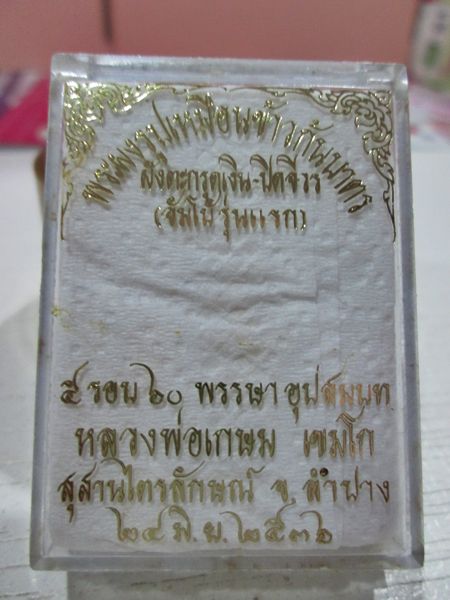 พระผงรูปเหมือนข้าวก้นบาตร
ฝังตะกรุดเงิน-ปิดจีวร
(จัมโบ้ รุ่นแรก)
๕ รอบ ๖๐ พรรษา อุปสมบท
หลวงพ่อเกษม เขมโก
สุสานไตรลักษณ์ จ. ลำปาง
๒๔ มิ.ย. ๒๕๓๖